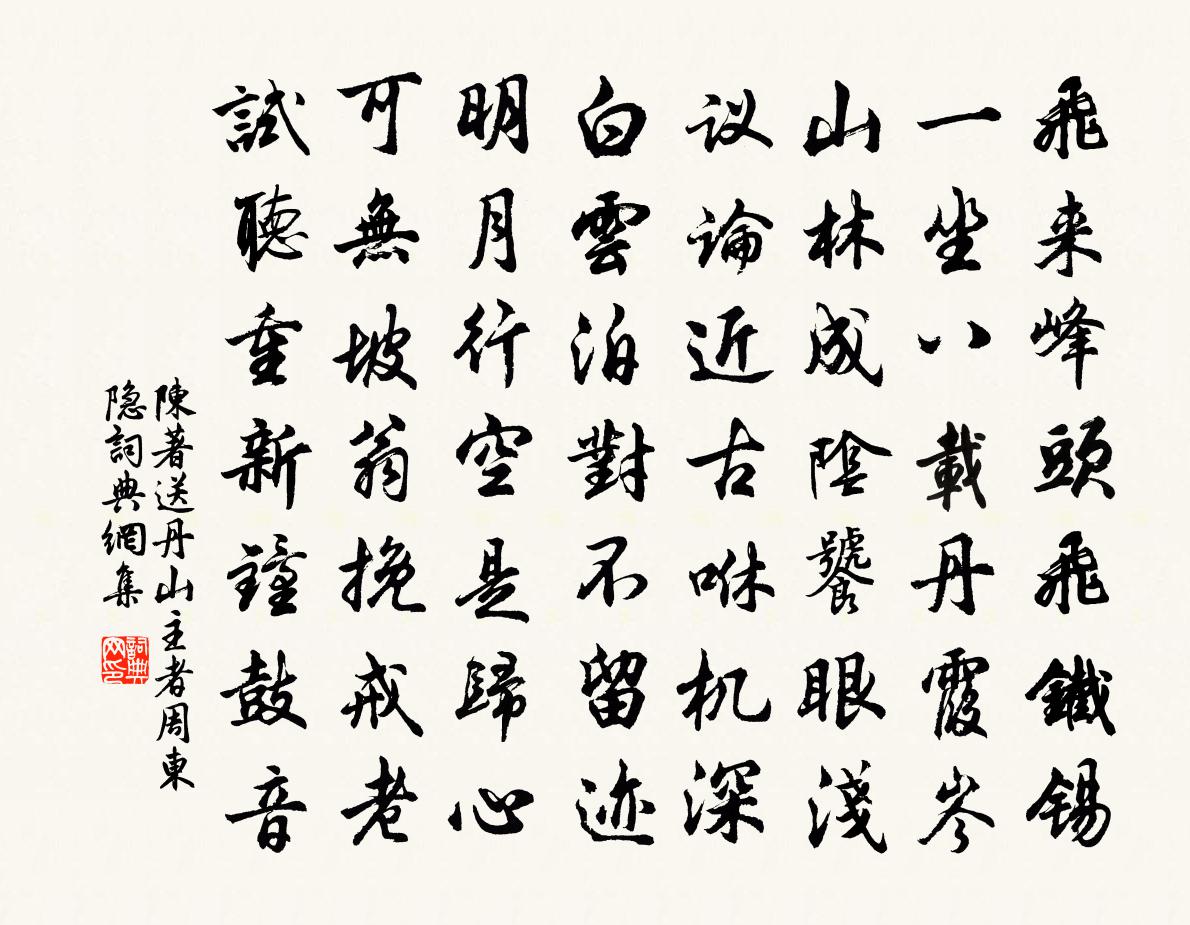 飛来峰頭飛鐵錫
一坐八載丹霞岑
山林成陰饕眼淺
议論近古咻机深
白雲泊對不留迹
明月行空是歸心
可無坡翁挽戒老
試聽重新鐘鼓音
陳著送丹山主者周東
隐詞典網集
詞典网印